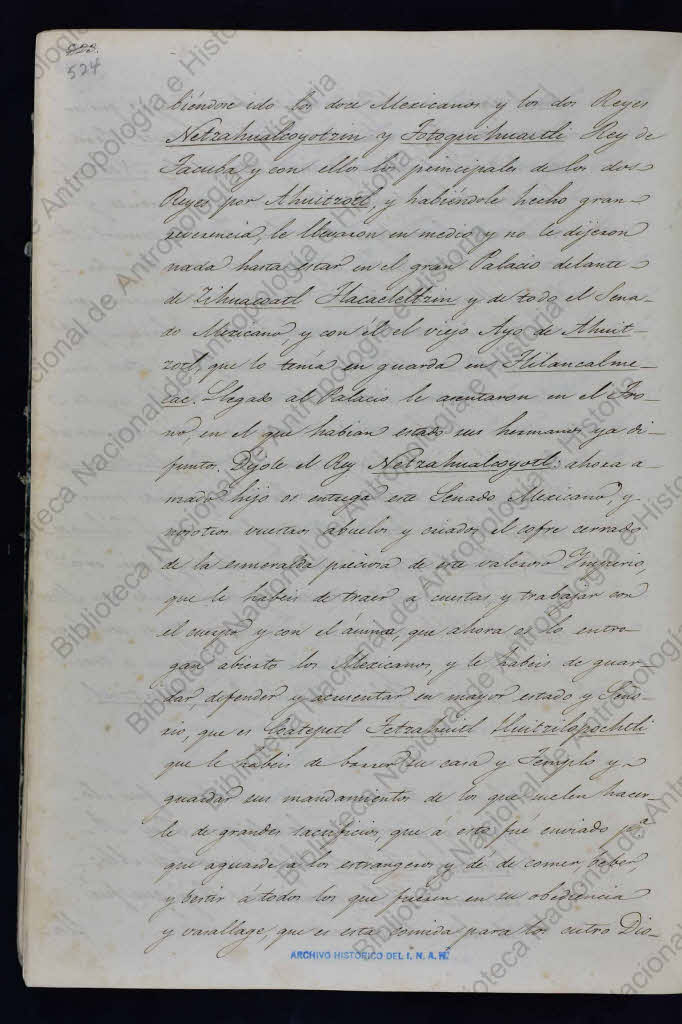 523.
524
biéndose ido los doce Mexicanos y los dos Reyes
Netzahualcoyotzin y Totoquihuaztli Rey de
Tacuba, y con ellos los principales de los dos
Reyes por Ahuitzotl, y habiéndole hecho gran
reverencia, le llevaron en medio y no le dijeron
nada hasta estar en el gran Palacio delante
de Zihuacoatl Tlacaeleltzin y de todo el Sena-
do Mexicano, y con él el viejo Ayo de Ahuit-
zotl, que lo tenía en guarda en Tlilancalme-
cac. Llegado al Palacio le asentaron en el Tro-
no, en el que habian estado sus hermanos ya di-
funtos. Dijole el Rey Netzahualcoyotl: ahora a-
mado hijo os entrega este Senado Mexicano, y
nosotros vuestros abuelos y criados el cofre cerrado
de la esmeralda preciosa de este valeroso Imperio,
que le habeis de traer a cuestas, y trabajar con
el cuerpo y con el ánima, que ahora os lo entre-
gan abierto los Mexicanos, y le habeis de guar-
dar defender y acrecentar en mayor estado y Seño-
rio, que es Coatepetl Tetzahuitl Huitzilopochtli
que le habeis de barrer su casa y Templo y
guardar sus mandamientos de los que suelen hacer-
le de grandes sacrificios, que á esto fué enviado pa
que aguarde a los estrangeros y dé de comer, beber,
y vestir á todos los que fuesen en su obediencia
y vasallage, que es esta comida para los cutro Dio-
ARCHIVO HISTORICO DEL I. N. A. H.
Biblioteca Nacional de Antropología e Historia